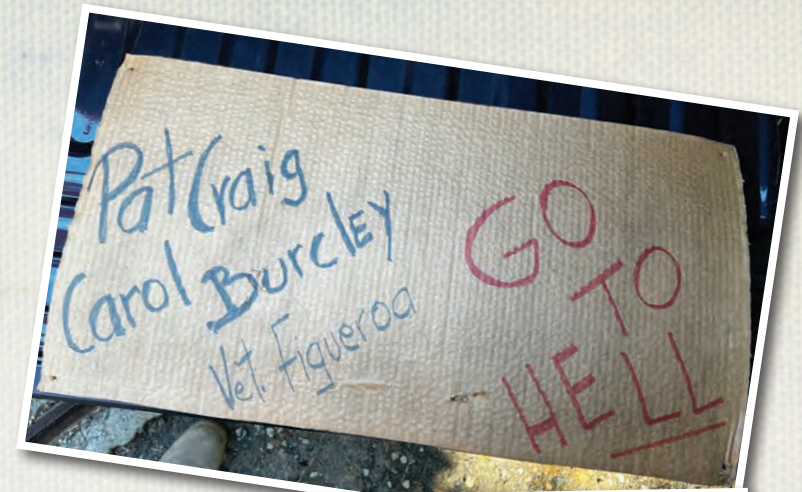 Pat Craig
Carol Burcley
Vet. Figueroa
GO
TO
HELL